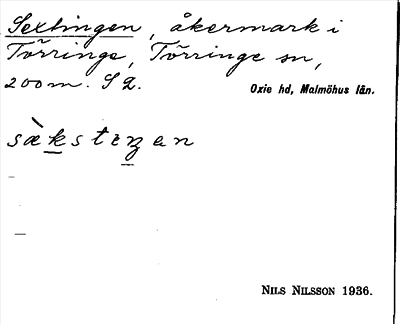 Sextingen, åkermark i
Törringe, Törringe sn,
200 m. S 2.
Oxie hd, Malmöhus län.
sæ̀kstiŋen
NILS NILSSON 1936.